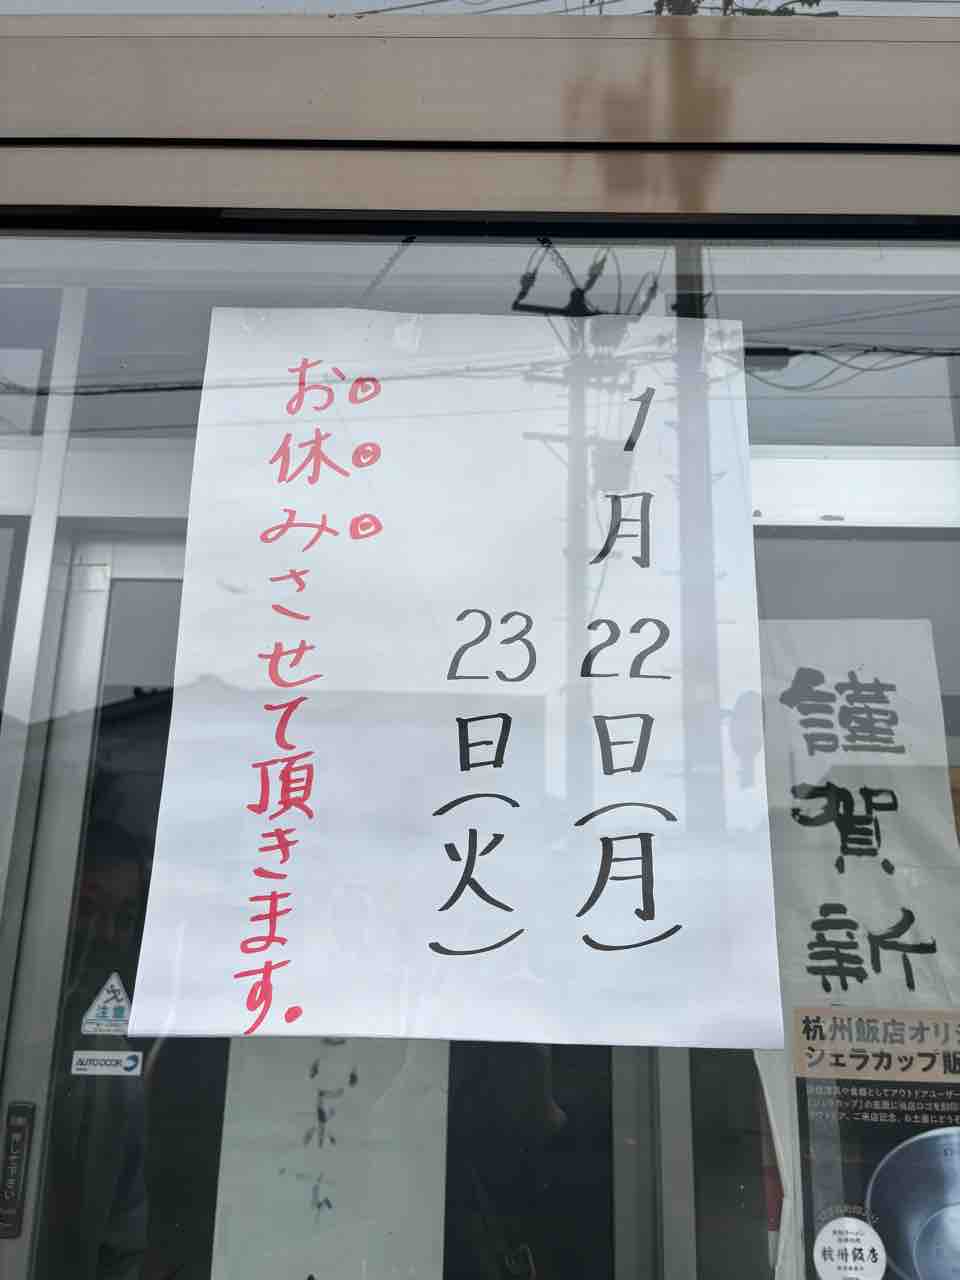 1月22日(月)
23日(火)
お休みさせて頂きます。
謹賀新
杭州飯店オリジ
シェラカップ販
注意
AUTO DOOR
杭州飯店